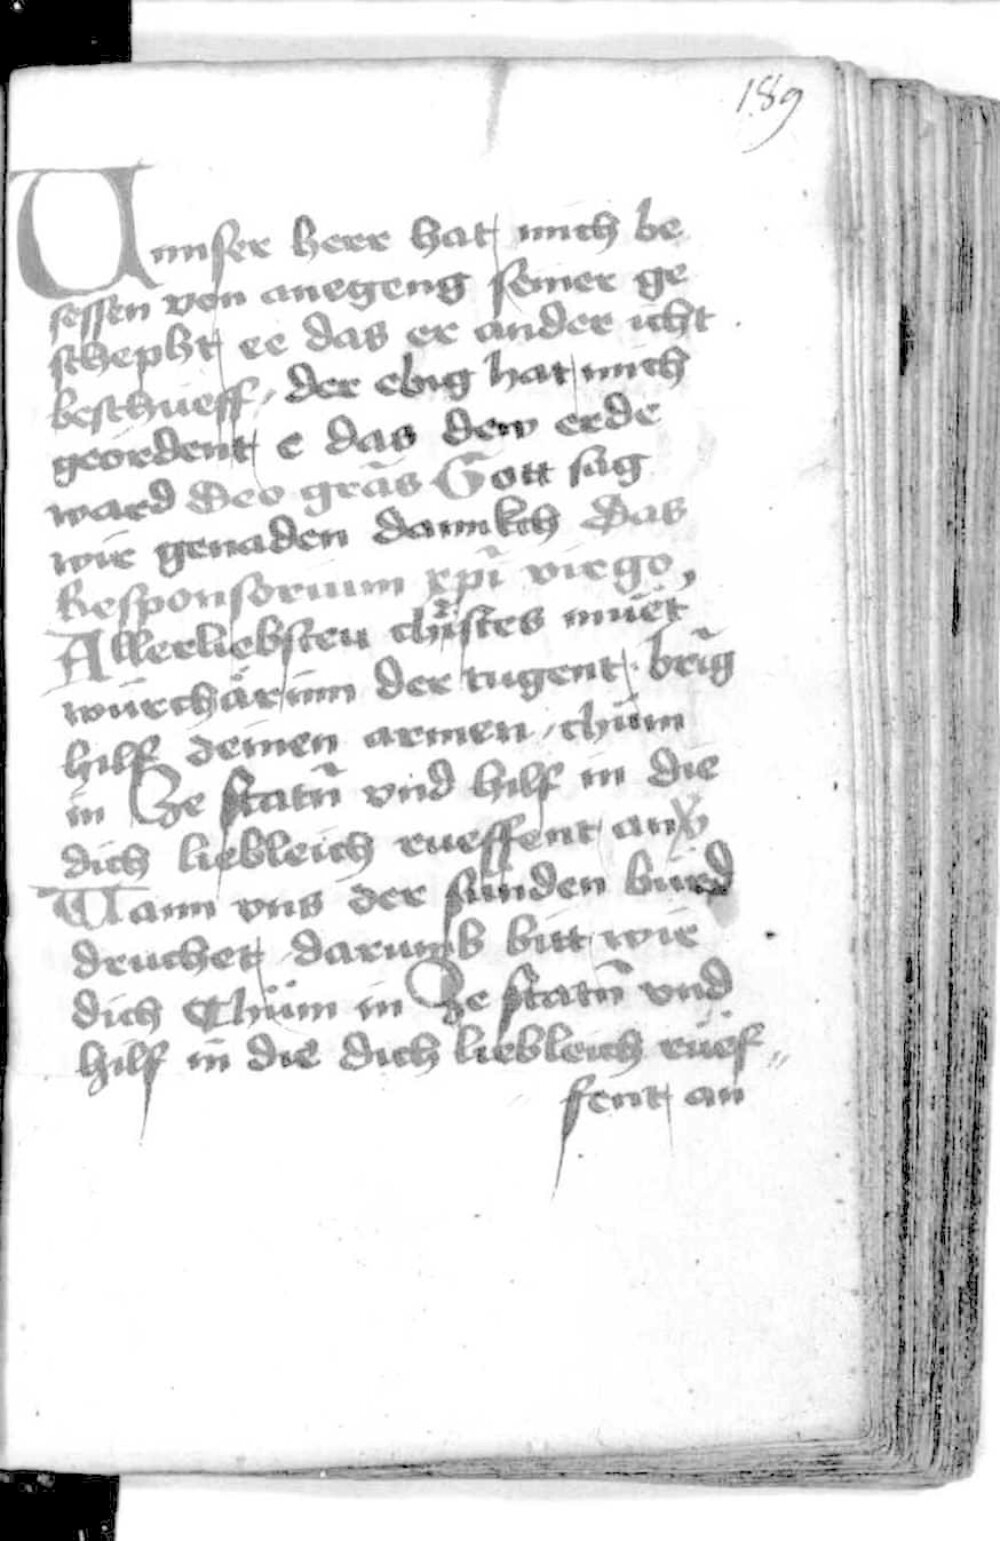 189
Unnser herr hat mich be
sessen von anegeng seiner ge
schepht ee das er ander icht
beschueff, der ebig hat mich
geordent e das dew erde
ward Deo grās Gott sag
wir genaden dannkch Das
Responsorium xpī virgo,
Allerliebsten christes muet
würchärinn der tugent brīg
hilf deinen armen, chüm
in Ze statn̄ vnd hilf in die
dich liebleich rueffent an V
Wann vns der sünden bürd
druchet darumb bitt wir
dich Chüm in Ze statn̄ vnd
hilf in die dich liebleich rüef„
fent an